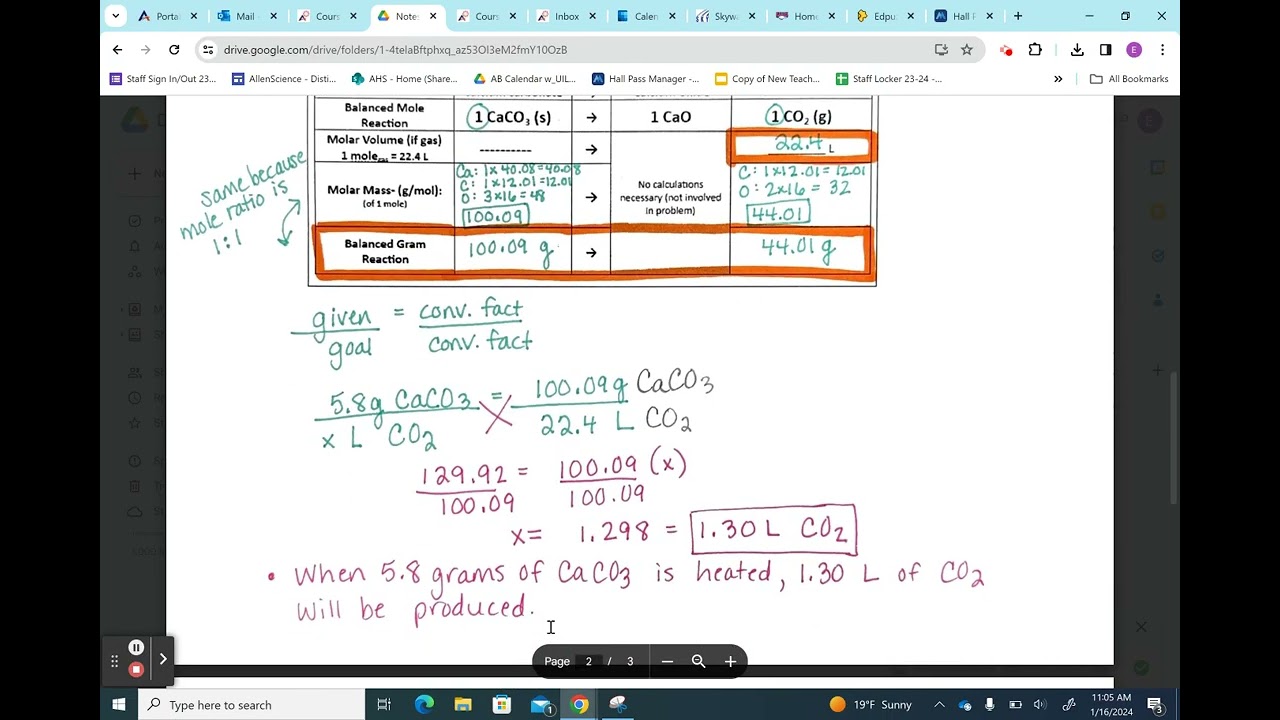 Porta
Mail
Cours
Notes
Cours
Inbox
Calen
Skyw
Home
Edpu
Hall F
drive.google.com/drive/folders/1-4telaBftphxq_az53Ol3eM2fmY10OzB
E
Staff Sign In/Out 23...
AllenScience - Disti...
AHS - Home (Share...
AB Calendar w_UIL...
Hall Pass Manager -...
Copy of New Teach...
Staff Locker 23-24 -...
»
All Bookmarks
Balanced Mole Reaction
1 CaCO₃ (s)
→
1 CaO
1 CO₂ (g)
Molar Volume (if gas)
1 mole = 22.4 L
----------
→
22.4 L
same because
mole ratio is
1:1
Molar Mass- (g/mol):
(of 1 mole)
Ca: 1x 40.08=40.08
C: 1x12.01=12.01
O: 3x16=48
100.09
→
No calculations
necessary (not involved
in problem)
C: 1x12.01=12.01
O: 2x16 = 32
44.01
Balanced Gram
Reaction
100.09 g
→
44.01 g
given = conv. fact
goal conv. fact
5.8g CaCO3 = 100.09g CaCO3
x L CO2 22.4 L CO2
129.92 = 100.09 (x)
100.09 100.09
x= 1.298 = 1.30 L CO2
• When 5.8 grams of CaCO3 is heated, 1.30 L of CO2
will be produced.
Page 2 / 3
Type here to search
19°F Sunny
11:05 AM
1/16/2024